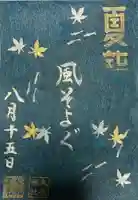 夏詣
風そよぐ
八月十五日